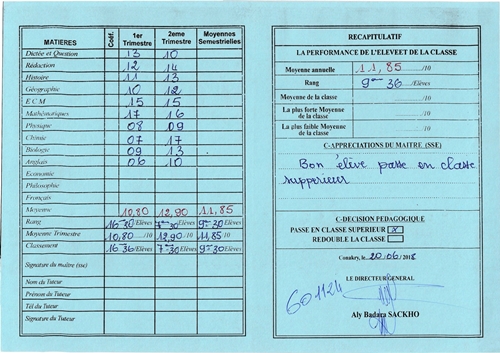 MATIERES Coéf. 1er Trimestre 2eme Trimestre Moyennes Semestrielles
Dictée et Question 13 10
Rédaction 12 14
Histoire 11 13
Géographie 10 12
E C M 15 15
Mathématiques 17 16
Physique 08 09
Chimie 07 17
Biologie 09 13
Anglais 06 10
Economie
Philosophie
Français
Moyenne 10,80 12,90 11,85
Rang /Elèves /Elèves /Elèves
Moyenne Trimestre 10,80 /10 12,90 /10 11,85 /10
Classement /Elèves /Elèves /Elèves
Signature du maître (sse)
Nom du Tuteur
Prénom du Tuteur
Tél du Tuteur
Signature du Tuteur
RECAPITULATIF
LA PERFORMANCE DE L'ELEVEET DE LA CLASSE
Moyenne annuelle 11,85 /10
Rang 9ème 36 /Elèves
Moyenne de la classe /10
La plus forte Moyenne de la classe /10
La plus faible Moyenne de la classe /10
C-APPRECIATIONS DU MAITRE (SSE)
Bon élève passe en classe
supperieur
C-DECISION PEDAGOGIQUE
PASSE EN CLASSE SUPERIEUR X
REDOUBLE LA CLASSE
Conakry, le 20/06/2018
LE DIRECTEUR GENERAL
601124
Aly Badara SACKHO